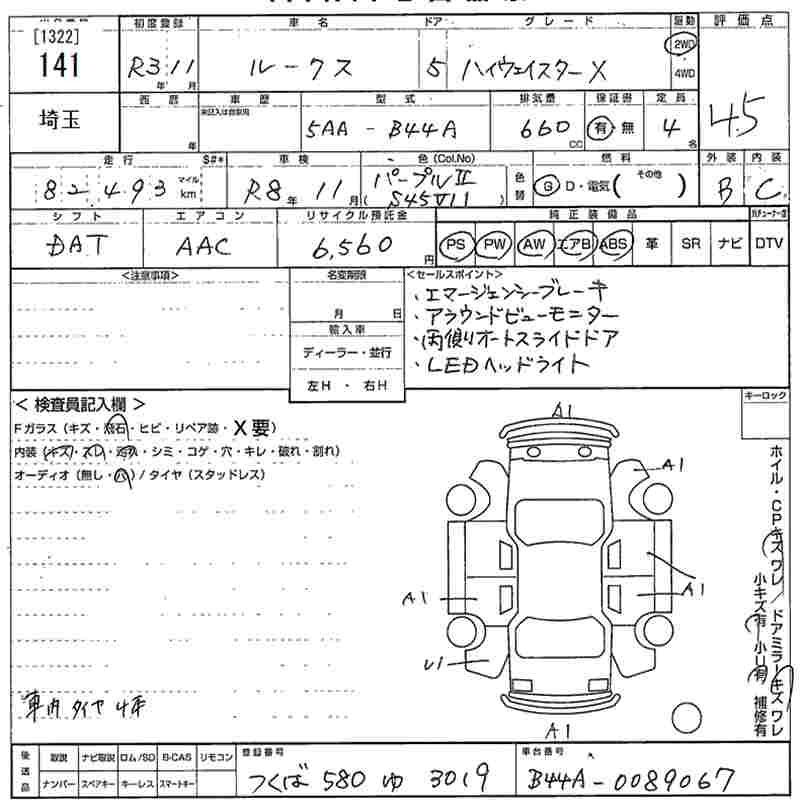 [1322]
141
埼玉
初度登録 車名 ドア グレード 駆動 評価点
R3 11 ルークス 5 ハイウェイスターX 2WD
年 月 4WD
4.5
西暦 車歴 型式 排気量 保証書 定員
未記入は自家用
5AA - B44A 660 有・無 4
年 cc 名
走行 S#* 車検 色(Col.No) 色替 燃料 外装 内装
82,493 マイル km R8年 11月 (パープルⅡ S45V11) G D・電気( その他 ) B C
シフト エアコン リサイクル預託金 純正装備品
DAT AAC 6,560円 PS PW AW エアB ABS 革 SR ナビ DTV
<注意事項> 名変期限 <セールスポイント>
月 日
輸入車
ディーラー・並行
左H ・ 右H
・エマージェンシーブレーキ
・アラウンドビューモニター
・両側オートスライドドア
・LEDヘッドライト
<検査員記入欄>
キーロック
Fガラス(キズ・飛石・ヒビ・リペア跡・X要)
内装(キズ・スレ・汚れ・シミ・コゲ・穴・キレ・破れ・割れ)
オーディオ(無し・ハ)/タイヤ(スタッドレス)
A1
A1
A1
A1
U1
A1
ホイル・CPキズワレ/ドアミラーキズワレ
小キズ有 小U有 補修有
車内タイヤ4本
後送品 取説 ナビ取説 ロム/SD B-CAS リモコン
ナンバー スペアキー キーレス スマートキー
登録番号
つくば 580 ゆ 3019
車台番号
B44A-0089067